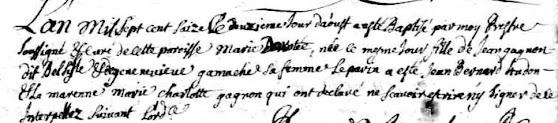 L'an Mil Sept cent Saize Le deuxieme Jour daoust a esté Baptisé par moy Prestre
soussigné & Curé de cette paroisse Marie née ce mesme Jour fille de Jean gagnon
dit Belisle & de genevieve gamache Sa femme Le parin a esté Jean Bernard
Et la marenne marie charlotte gagnon qui ont declaré ne scavoir escrire ny Signer de ce
Interpellez Suivant Lord.ce